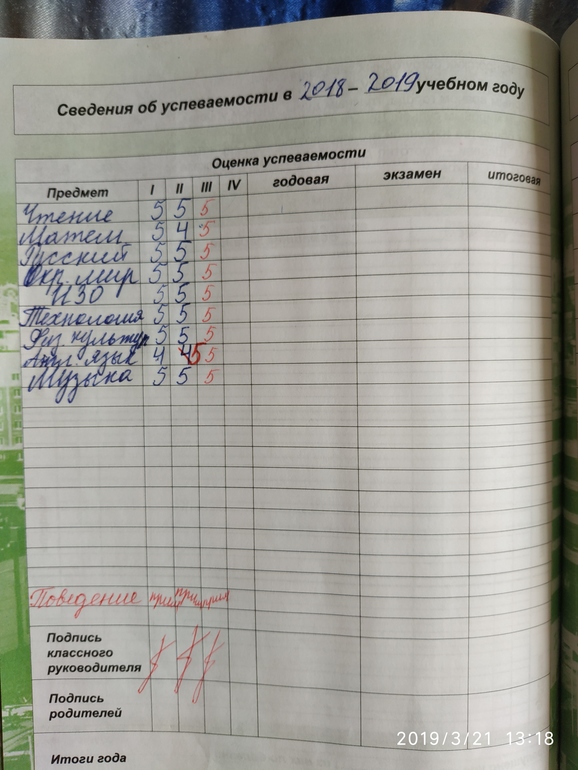 Сведения об успеваемости в 2018 – 2019 учебном году
Оценка успеваемости
Предмет I II III IV годовая экзамен итоговая
Чтение 5 5 5
Матем 5 4 5
Русский 5 5 5
Окр. мир 5 5 5
ИЗО 5 5 5
Технология 5 5 5
Физ. культур 5 5 5
Англ. язык 4 4 5 5
Музыка 5 5 5
Поведение прим прим прим
Подпись
классного
руководителя
Подпись
родителей
Итоги года
2019/3/21 13:18